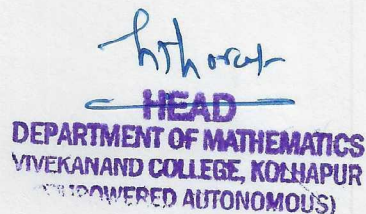 HEAD
DEPARTMENT OF MATHEMATICS
VIVEKANAND COLLEGE, KOLHAPUR
(EMPOWERED AUTONOMOUS)